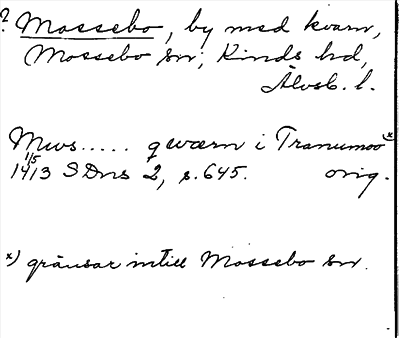 ? Mossebo, by med kvarn,
Mossebo sn, Kinds hd,
Älvsb. l.
Mws..... qwærn i Tranumoo x)
1/5
1413 SDns 2, s. 645. orig.
x) gränsar intill Mossebo sn.